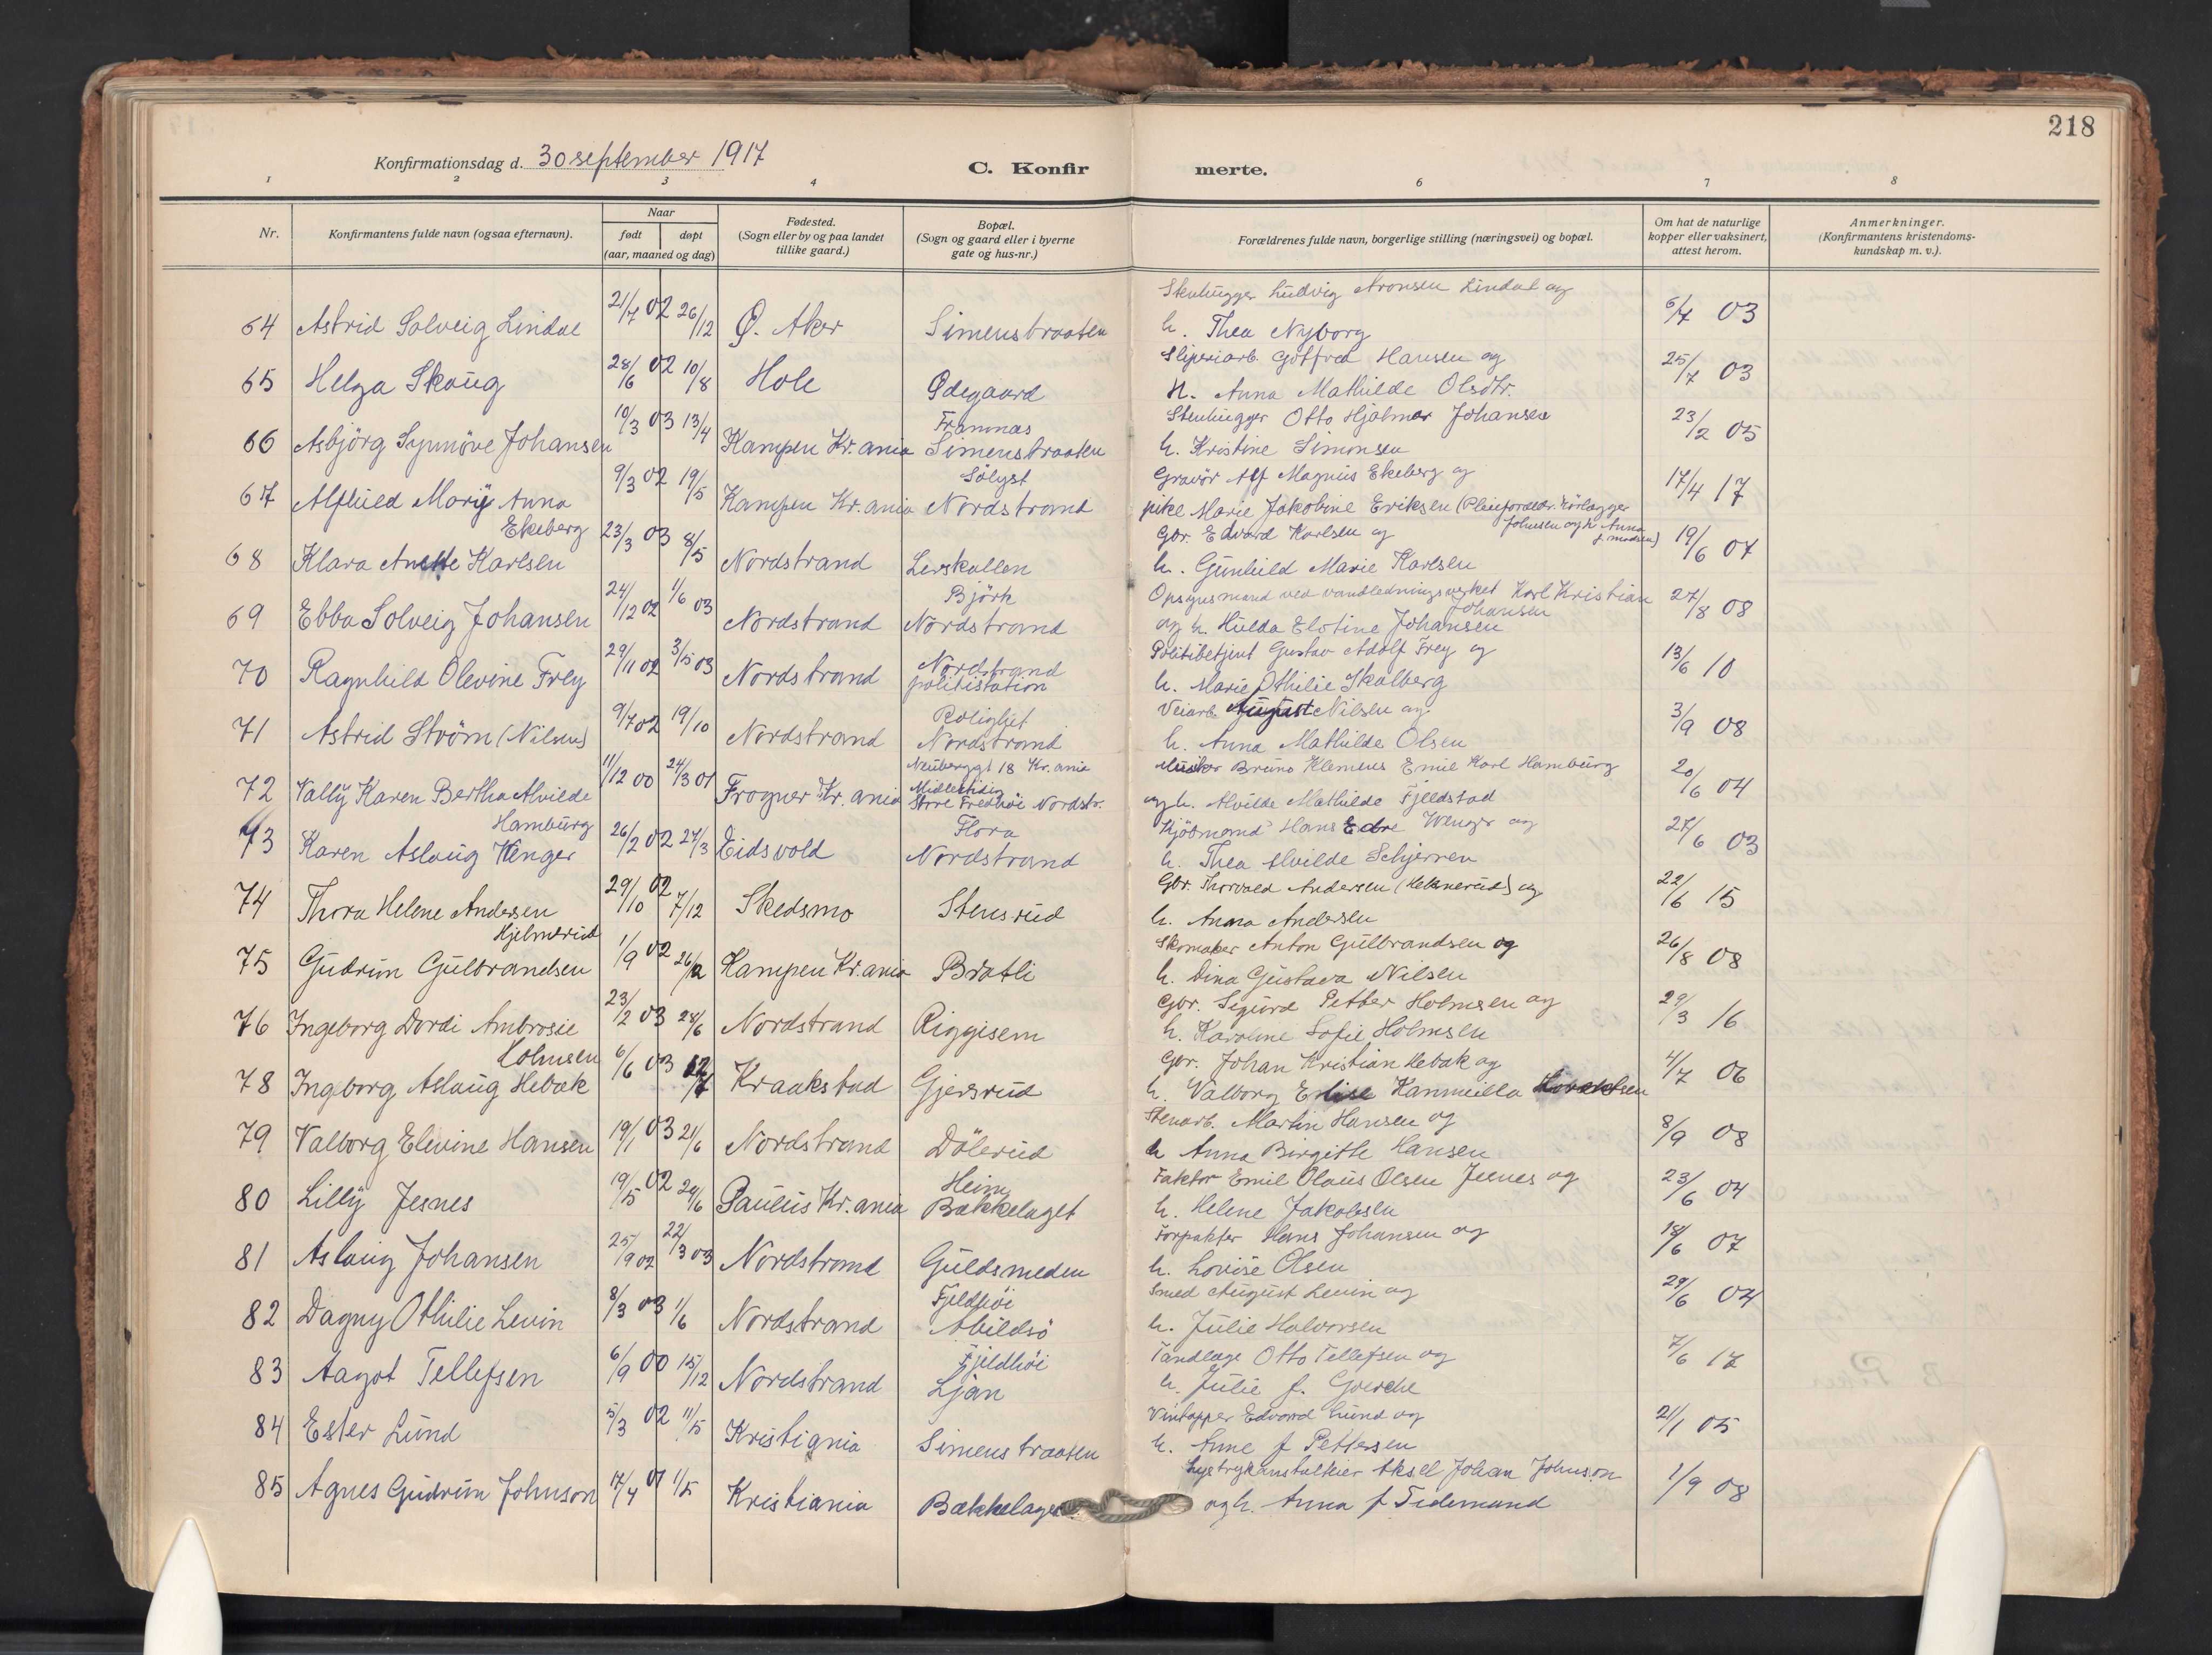 218
Konfirmationsdag d. 30 september 1917
C. Konfir merte.
1 2 3 4 6 7 8
Nr.
Konfirmantens fulde navn (ogsaa efternavn).
Naar
født døpt
(aar, maaned og dag)
Fødested.
(Sogn eller by og paa landet
tillike gaard.)
Bopæl.
(Sogn og gaard eller i byerne
gate og hus-nr.)
Forældrenes fulde navn, borgerlige stilling (næringsvei) og bopæl.
Om hat de naturlige
kopper eller vaksinert,
attest herom.
Anmerkninger.
(Konfirmantens kristendoms-
kundskap m. v.).
Stenhugger Ludvig Aronsen Lindal og
64 Astrid Solveig Lindal 21/7 02 26/12 Ø. Aker Simensbraaten h. Thea Nyborg 6/7 03
Sliperiarb. Gotfred Hansen og
65 Helga Skaug 28/6 02 10/8 Hole Ødegaard H. Anna Mathilde Olsdtr. 25/7 03
Framnæs Stenhugger Otto Hjalmar Johansen
66 Asbjörg Synnöve Johansen 10/3 03 13/4 Kampen Kr.ania Simensbraaten h. Kristine Simonsen 23/2 05
Sölyst Gravör Alf Magnus Ekeberg og
67 Alfhild Marie Anna 9/3 02 19/5 Kampen Kr.ania Nordstrand pike Marie Jakobine Eriksen (Pleieforældr. Rörlægger 17/4 17
Ekeberg Johnsen og h. Anna
f. Madsen)
Gbr. Edvard Karlsen og
68 Klara Anette Karlsen 23/3 03 8/5 Nordstrand Lerskallen h. Gunhild Marie Karlsen 19/6 07
Björk Opsynsmand ved vandledningsverket Karl Kristian
Johansen
69 Ebba Solveig Johansen 24/12 02 1/6 03 Nordstrand Nordstrand og h. Hulda Elotine Johansen 27/8 08
Nordstrand Politibetjent Gustav Adolf Frey og
70 Ragnhild Olevine Frey 29/11 02 3/5 03 Nordstrand politistation h. Marie Othilie Skalberg 13/6 10
Rolighet Veiarb. August Nilsen og
71 Astrid Ström (Nilsen) 9/7 02 19/10 Nordstrand Nordstrand h. Anna Mathilde Olsen 3/9 08
Neuberggt 18 Kr.ania Musiker Bruno Klemens Emil Karl Hamburg
Midlertidig
72 Vally Karen Bertha Alvilde 11/12 00 24/3 01 Frogner Kr.ania Store Fredhöi Nordstr. og h. Alvilde Mathilde Fjeldstad 20/6 04
Hamburg Flora Kjöbmand Hans Edre Wenger og
73 Karen Aslaug Wenger 26/2 02 27/3 Eidsvold Nordstrand h. Thea Alvilde Schjerven 27/6 03
Gbr. Thorvald Andersen (Helmerud) og
74 Thora Helene Andersen 29/10 02 7/12 Skedsmo Stensrud h. Anna Andersen 22/6 15
Hjelmerud Skomaker Anton Gulbrandsen og
75 Gudrun Gulbrandsen 1/9 02 26/12 Kampen Kr.ania Bratli h. Dina Gustava Nilsen 26/8 08
Gbr. Sigurd Petter Holmsen og
76 Ingeborg Dordi Ambrosie 23/2 03 28/6 Nordstrand Riggisem h. Karoline Sofie Holmsen 29/3 16
Holmsen Gbr. Johan Kristian Hebæk og
78 Ingborg Aslaug Hebæk 6/6 03 12/7 Kraakstad Gjersrud h. Valborg Elise Kammilla 4/7 06
Stenarb. Martin Hansen og
79 Valborg Elevine Hansen 19/1 03 21/6 Nordstrand Dölerud h Anna Birgitte Hansen 8/9 08
Heim Faktor Emil Olaus Olsen Jesnes og
80 Lilly Jesnes 19/5 02 29/6 Paulus Kr.ania Bækkelaget h. Helene Jakobsen 23/6 04
Forpakter Hans Johansen og
81 Aslaug Johansen 25/9 02 22/3 03 Nordstrand Guldsmeden h. Lovise Olsen 18/6 07
Fjeldhöi Smed August Levin og
82 Dagny Othilie Levin 8/3 03 1/6 Nordstrand Abildsö h. Julie Halvorsen 29/6 04
Fjeldhöi Tandlæge Otto Tellefsen og
83 Aagot Tellefsen 6/9 00 15/12 Nordstrand Ljan h. Julie f. 7/6 17
Vintapper Edvard Lund og
84 Ester Lund 5/3 02 11/5 Kristiania Simensbraaten h. Anne f Pettersen 21/1 05
Aksel Johan Johnson
85 Agnes Gudrun Johnson 17/4 01 1/5 Kristiania Bækkelaget og h. Anna f Tidemand 1/9 08